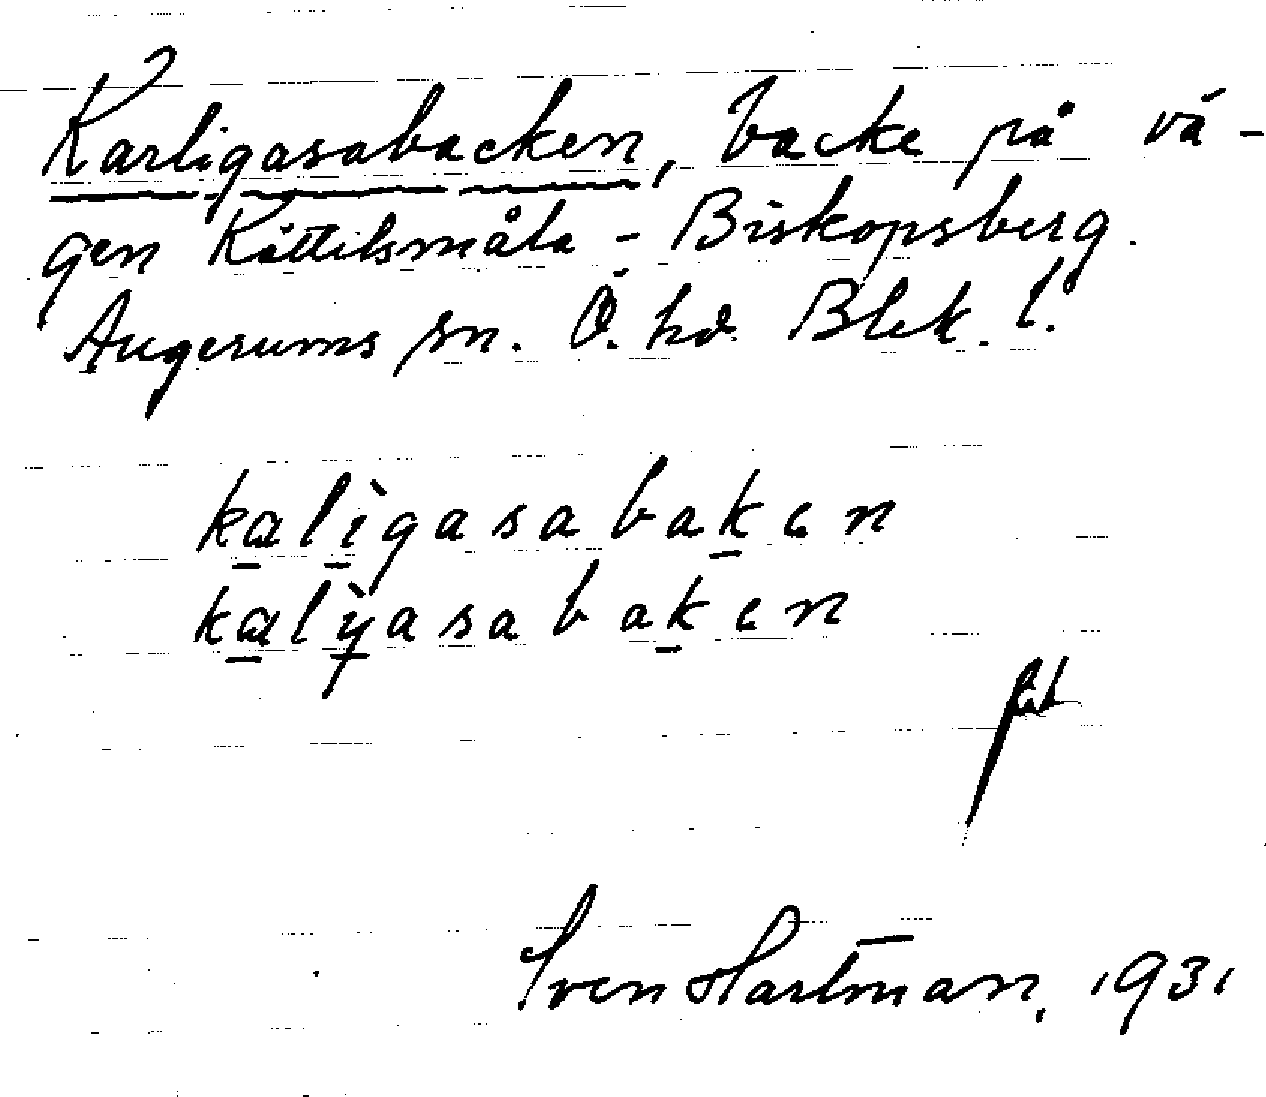 Karligasabacken, backe på vä-
gen Kättilsmåla - Biskopsberg.
Augerums sn. Ö. hd. Blek. l.
kalìgasabaken
kalỳasabaken
Sven Hartman, 1931